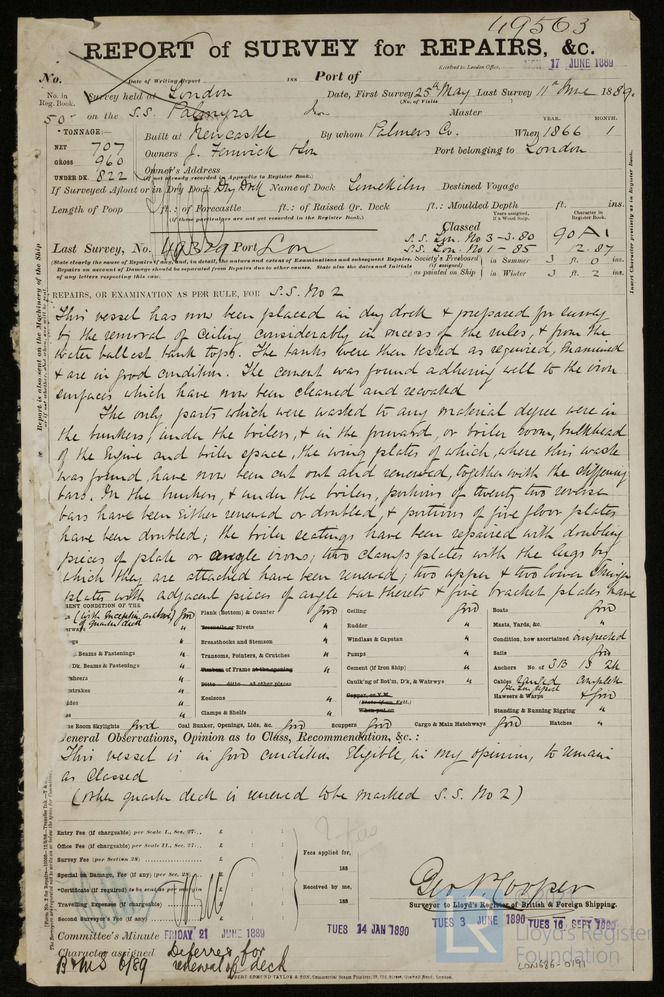 49563
REPORT of SURVEY for REPAIRS, &c.
Received in London Office, MON 17 JUNE 1889
No. Date of Writing Report 188 Port of
No. in Reg. Book. Survey held at London Date, First Survey 25th May Last Survey 11th June 1889.
(No. of Visits
50 on the S.S. Palmyra Iron Master
TONNAGE:— Built at Newcastle By whom Palmers Co. When 1866 YEAR. 1 MONTH.
NET 707
GROSS 960 Owners J. Fenwick & Son Port belonging to London
UNDER DK. 822 Owner's Address
(If not already recorded in Appendix to Register Book.)
If Surveyed Afloat or in Dry Dock Dry Dock Name of Dock Limekilns Destined Voyage
Length of Poop ft.: of Forecastle ft.: of Raised Qr. Deck ft.: Moulded Depth ft. ins.
(If these particulars are not yet recorded in the Register Book.)
Years assigned, if a Wood Ship. Character in Register Book.
Classed
Last Survey, No. 49329 Port Lon S.S. Lon. No 3-3.80 90 A1
S.S. Lon. No 1-85 2.87
Society's Freeboard (if assigned) as painted on Ship in Summer 3 ft. 0 ins.
in Winter 3 ft. 2 ins.
(State clearly the cause of Repairs if any, and, in detail, the nature and extent of Examinations and subsequent Repairs.
Repairs on account of Damage should be separated from Repairs due to other causes. State also the dates and Initials
of any letters respecting this case.)
REPAIRS, OR EXAMINATION AS PER RULE, FOR S.S. No 2
This vessel has now been placed in dry dock & prepared for survey
by the removal of ceiling considerably in excess of the rules, & from the
water ballast tank tops. The tanks were then tested as required, examined
& are in good condition. The cement was found adhering well to the iron
surfaces which have now been cleaned and recoated
The only parts which were wasted to any material degree were in
the bunkers, under the boilers, & in the forward, or boiler room, bulkhead
of the engine and boiler space, the wing plates of which, where this waste
was found, have now been cut out and renewed, together with the stiffening
bars. In the bunkers, & under the boilers, portions of twenty two reverse
bars have been either renewed or doubled, & portions of five floor plates
have been doubled; the boiler seatings have been repaired with doubling
pieces of plate or angle irons; two clamp plates with the lugs by
which they are attached have been renewed; two upper & two lower stringer
plates with adjacent pieces of angle bar thereto & five bracket plates have
RENT CONDITION OF THE
(with exception of quarter deck) Good
Plank (Bottom) & Counter Good
Treenails or Rivets "
Breasthooks and Stemson "
Transoms, Pointers, & Crutches "
Timbers of Frame at the opening "
Ditto ditto at other places "
Keelsons "
Clamps & Shelfs "
Beams & Fastenings "
Dk. Beams & Fastenings "
Ceiling Good
Rudder "
Windlass & Capstan "
Pumps "
Cement (if Iron Ship) "
Caulk'ng of Bot'm, D'ks, & Watrwys "
Copper, or Y.M.
(State if on Felt.)
When put on
Boats Good
Masts, Yards, &c. "
Condition, how ascertained inspected
Sails Good
Anchors No. of 3B 1S 2K
Cables complete
Hawsers & Warps & Good
Standing & Running Rigging "
ne Room Skylights Good Coal Bunker, Openings, Lids, &c. Good Scuppers Good Cargo & Main Hatchways Good Hatches "
General Observations, Opinion as to Class, Recommendation, &c.:
This vessel is in good condition eligible, in my opinion, to remain
as classed
(when quarter deck is renewed to be marked S.S. No 2)
Entry Fee (if chargeable) per Scale I., Sec. 27.. £ : :
Office Fee (if chargeable) per Scale II., Sec. 27.. £ : :
Survey Fee (per Section 28) £ : :
Special Damage, Fee (if any) (per Sec. 28) £ : :
*Certificate (if required) to be sent as per margin
Travelling Expenses (if chargeable) £ : :
Second Surveyor's Fee (if any) £ : :
Fees applied for,
188
Received by me,
188
Geo P. Cooper
Surveyor to Lloyd's Register of British & Foreign Shipping.
Committee's Minute FRIDAY 21 JUNE 1889 TUES 14 JAN 1890 TUES 3 JUNE 1890 TUES 16 SEPT 1890
Character assigned Deferred for
renewal of deck
B&MS 6/89
LR Lloyd's Register Foundation
LON686-0191